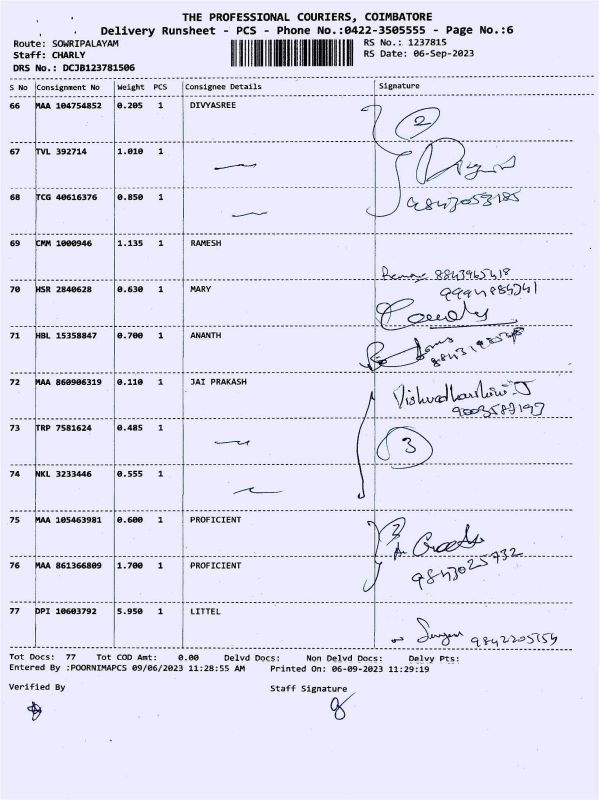 THE PROFESSIONAL COURIERS, COIMBATORE
Delivery Runsheet - PCS - Phone No.:0422-3505555 - Page No.:6
Route: SOWRIPALAYAM RS No.: 1237815
Staff: CHARLY RS Date: 06-Sep-2023
DRS No.: DCJB123781506
S No Consignment No Weight PCS Consignee Details Signature
66 MAA 104754852 0.205 1 DIVYASREE 2
67 TVL 392714 1.010 1
68 TCG 40616376 0.850 1 9843053185
69 CMM 1000946 1.135 1 RAMESH
8843965418
70 HSR 2840628 0.630 1 MARY
71 HBL 15358847 0.700 1 ANANTH
72 MAA 860906319 0.110 1 JAI PRAKASH
73 TRP 7581624 0.485 1 3
74 NKL 3233446 0.555 1
75 MAA 105463981 0.600 1 PROFICIENT 2
76 MAA 861366809 1.700 1 PROFICIENT 9843025732
77 DPI 10603792 5.950 1 LITTEL
Tot Docs: 77 Tot COD Amt: 0.00 Delvd Docs: Non Delvd Docs: Delvy Pts:
Entered By :POORNIMAPCS 09/06/2023 11:28:55 AM Printed On: 06-09-2023 11:29:19
Verified By Staff Signature